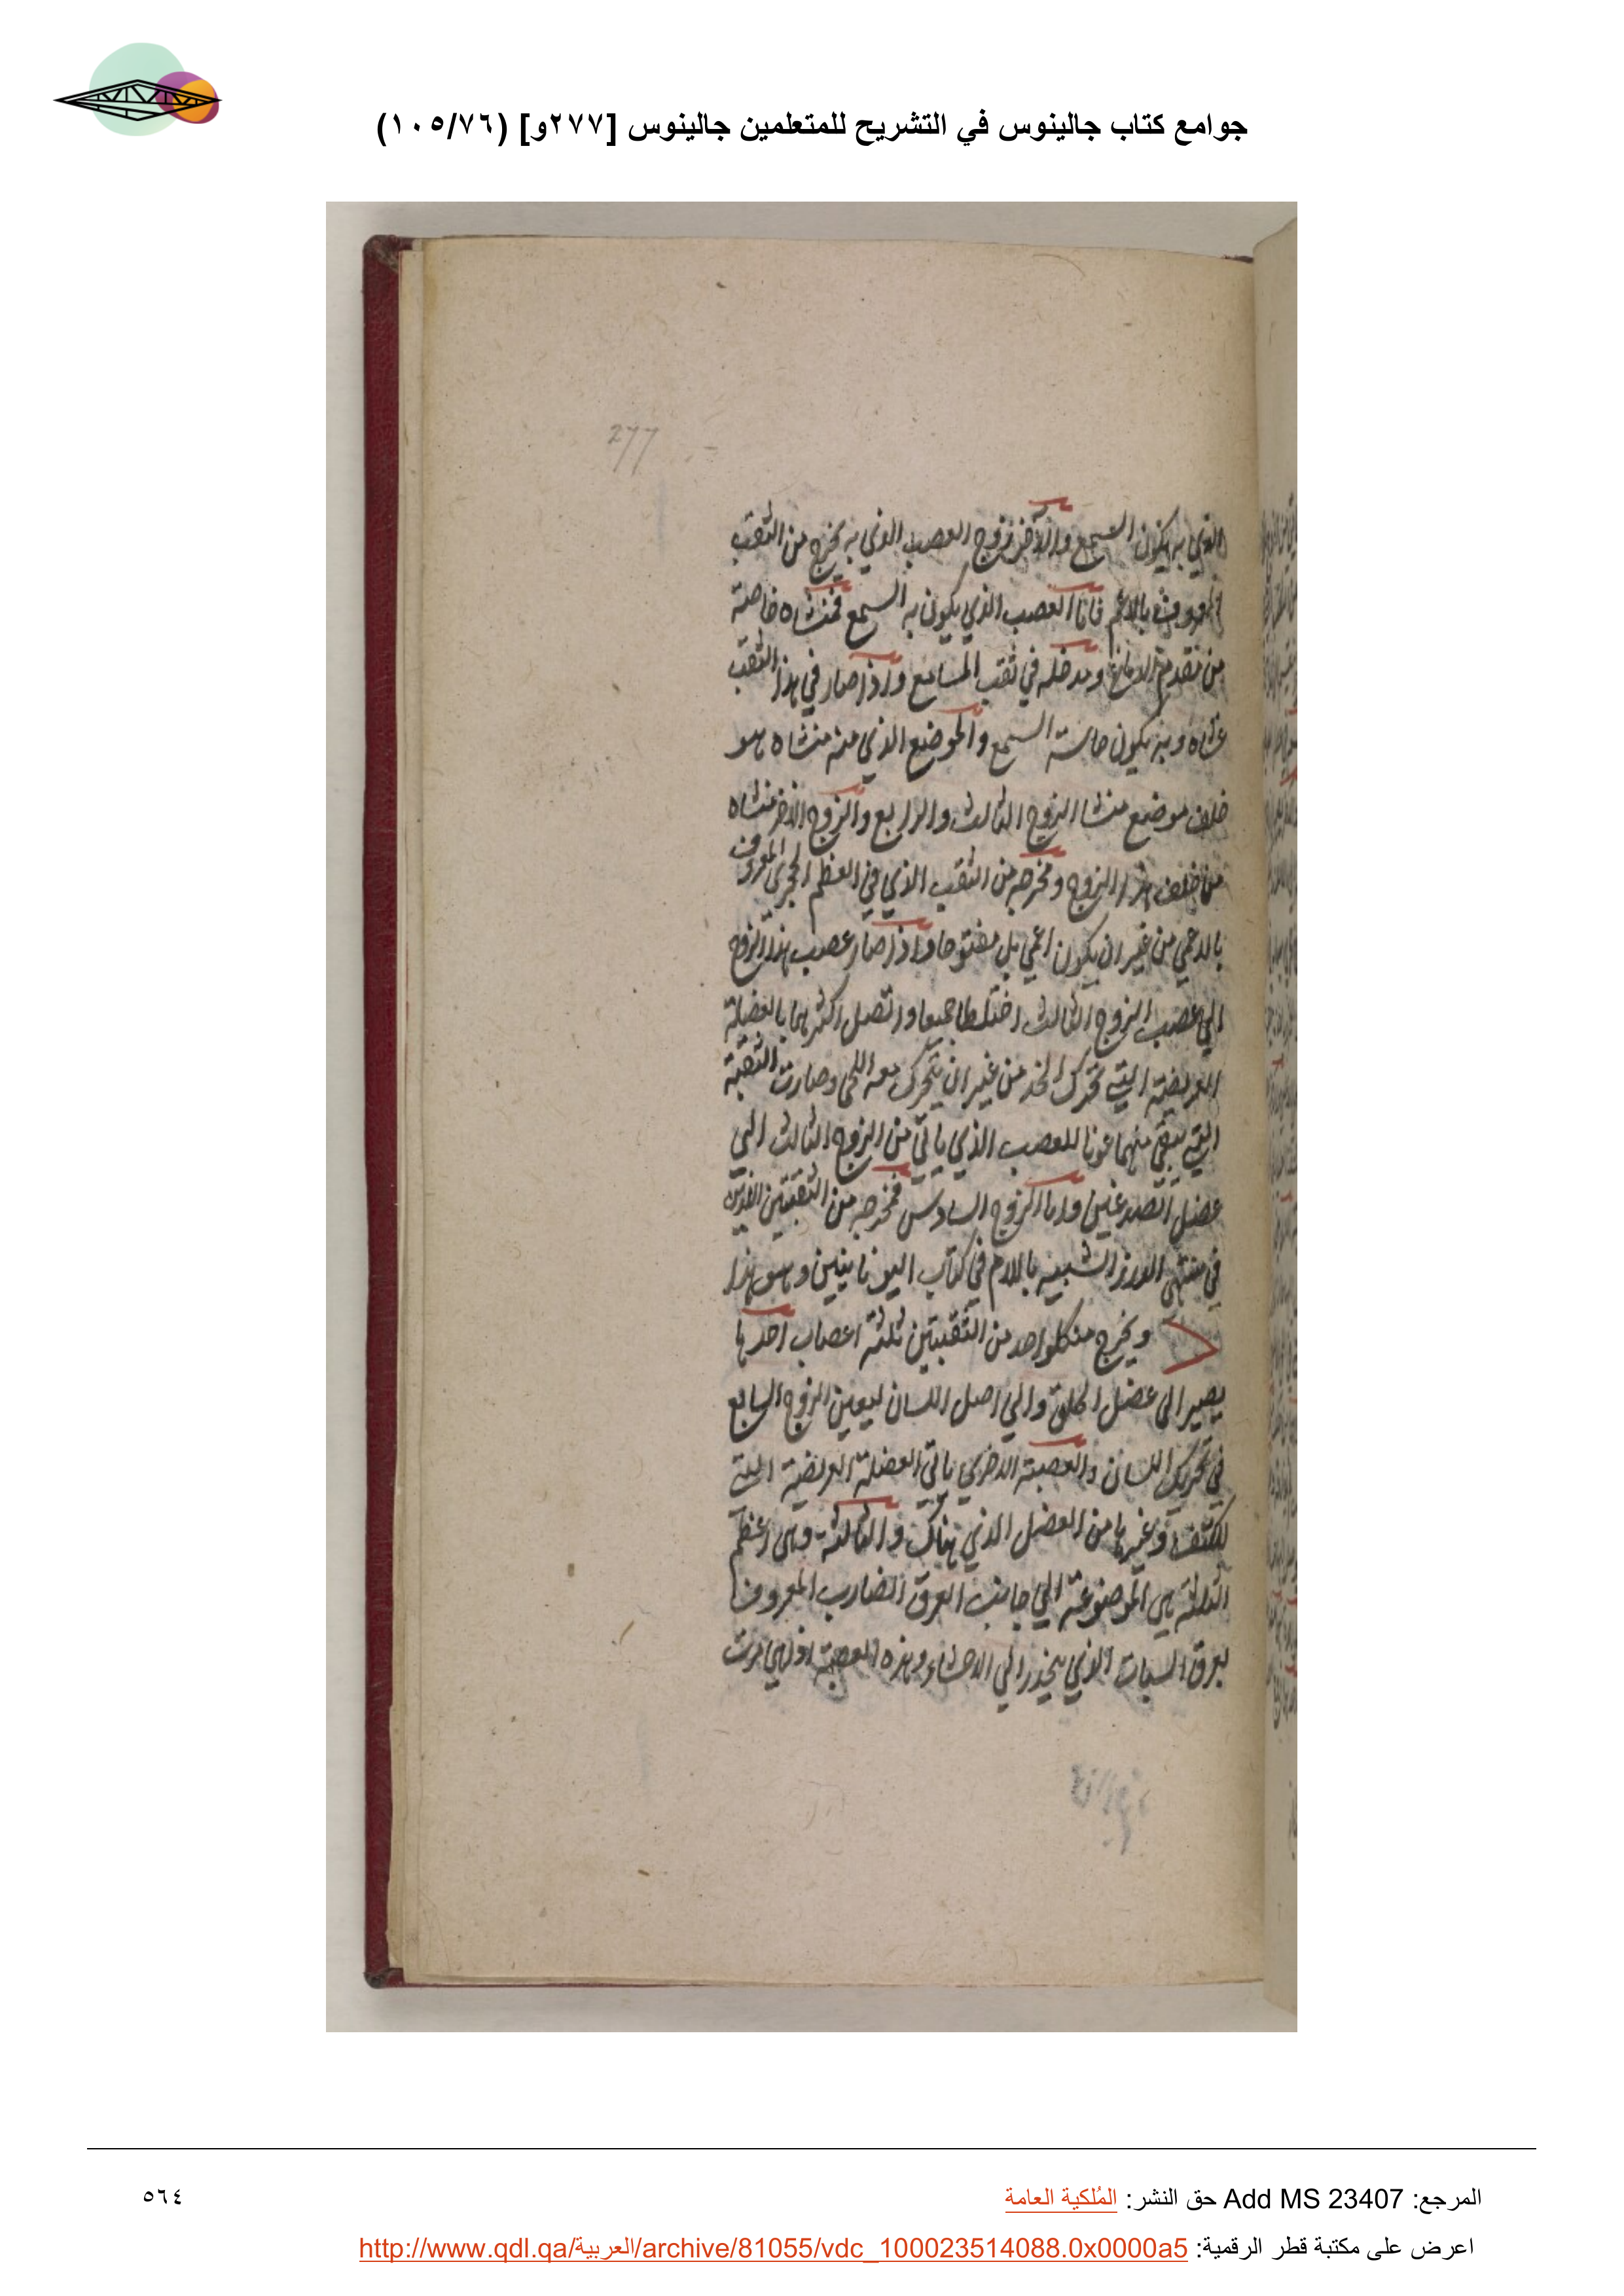 جوامع كتاب جالينوس في التشريح للمتعلمين جالينوس [٢٧٧و] (١٠٥/٧٦)
277
الذي به يكون السمع والآخر زوج العصب الذي به يخرج من الثقب
المعروف بالاعمى فاما العصب الذي يكون به السمع فمنشاه خاصة
من مقدم الدماغ ومدخله في ثقب المسامع واذا صار في هذا الثقب
غشاه وبه يكون حاسة السمع والموضع الذي منه منشاه هو
خلف موضع منشا الزوج الثالث والرابع والزوج الاخر منشاه
من خلف هذا الزوج ومخرجه من الثقب الذي في العظم الحجرى المعروف
بالاعمي من غير ان يكون اعمي بل مفتوحا واذا صار عصب هذا الزوج
الي عصب الزوج الثالث اختلطا جميعا واتصل اكثرهما بالعضلة
العريضة التي تحرك الخد من غير ان يتحرك معه اللحى وصارت البقية
التي تبقي منهما عونا للعصب الذي ياتي من الزوج الثالث الي
عضل الصدغين واما الزوج السادس فمخرجه من الثقبتين اللذين
في منتهى الدرز الشبيه باللام في كتاب اليونانيين وهو هذا
ويخرج من كلواحد من الثقبتين ثلثة اعصاب احدها
يصير الى عضل الحلق والي اصل اللسان ليعين الزوج السابع
في تحريك اللسان والعصبة الاخري ياتي العضلة العريضة التي
للكتف وغيرها من العضل الذي هناك والثالثة وهى اعظم
الثلاثة هى الموضوعة الي جانب العرق الضارب المعروف
بعرق السبات الذي ينحدر الي الاحشاء وهذه العصبة اذا هي مرت
المرجع: Add MS 23407 حق النشر: المُلكية العامة
٥٦٤
اعرض على مكتبة قطر الرقمية: http://www.qdl.qa/العربية/archive/81055/vdc_100023514088.0x0000a5